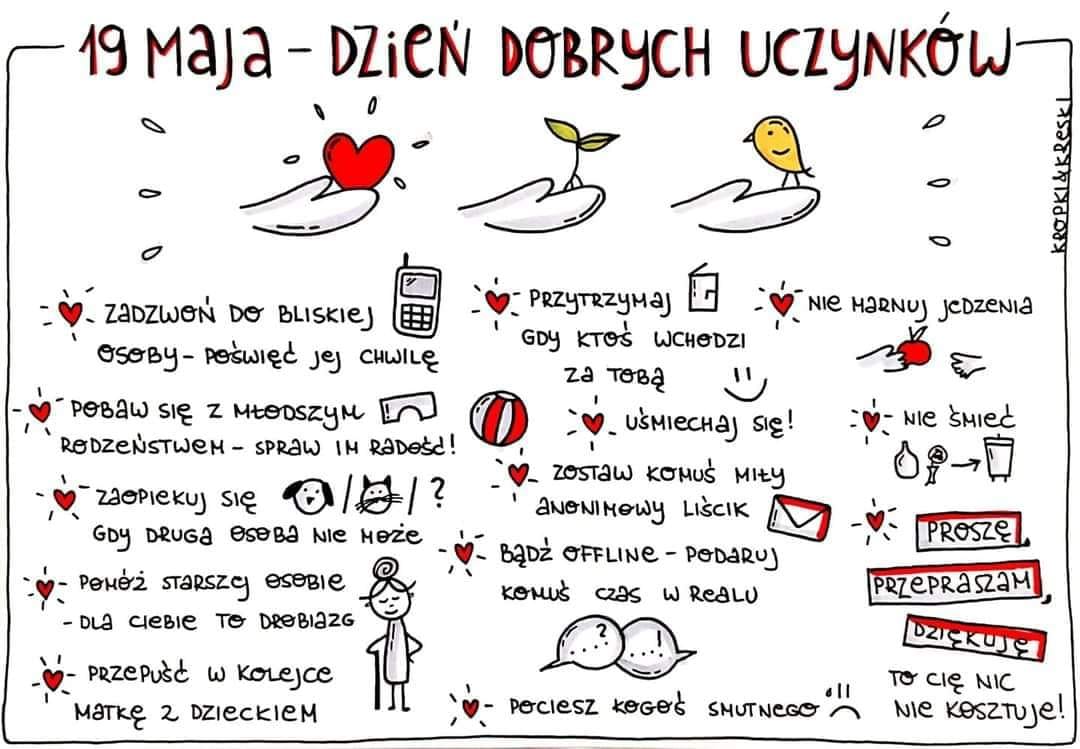 19 MAJA - DZIEŃ DOBRYCH UCZYNKÓW
KROPKI&KRESKI
ZADZWOŃ DO BLISKIEJ
OSOBY - POŚWIĘĆ JEJ CHWILĘ
POBAW SIĘ Z MŁODSZYM
RODZEŃSTWEM - SPRAW IM RADOŚĆ!
ZAOPIEKUJ SIĘ / / ?
GDY DRUGA OSOBA NIE MOŻE
POMÓŻ STARSZEJ OSOBIE
- DLA CIEBIE TO DROBIAZG
PRZEPUŚĆ W KOLEJCE
MATKĘ Z DZIECKIEM
PRZYTRZYMAJ
GDY KTOŚ WCHODZI
ZA TOBĄ
UŚMIECHAJ SIĘ!
ZOSTAW KOMUŚ MIŁY
ANONIMOWY LIŚCIK
BĄDŹ OFFLINE - PODARUJ
KOMUŚ CZAS W REALU
?... ...!
POCIESZ KOGOŚ SMUTNEGO
NIE MARNUJ JEDZENIA
NIE ŚMIEĆ
PROSZĘ,
PRZEPRASZAM,
DZIĘKUJĘ
TO CIĘ NIC
NIE KOSZTUJE!